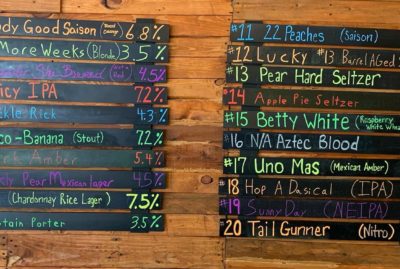 ody Good Saison 6.8%
More Weeks (Blonde) 3.5%
She Bronand 4.5%
icy IPA 7.2%
kle Rick 4.3%
co-Banana (Stout) 7.2%
Amber 5.4%
kly Pear Mexican lager 4.5%
(Chardonnay Rice Lager) 7.5%
tain Porter 3.5%
#11 22 Peaches (Saison)
#12 Lucky #13 Barrel Aged S
#13 Pear Hard Seltzer
#14 Apple Pie Seltzer
#15 Betty White (Raspberry White Wheat
#16 N/A Aztec Blood
#17 Uno Mas (Mexican Amber)
#18 Hop A Dasical (IPA)
#19 Sunny Day (NEIPA)
#20 Tail Gunner (Nitro)